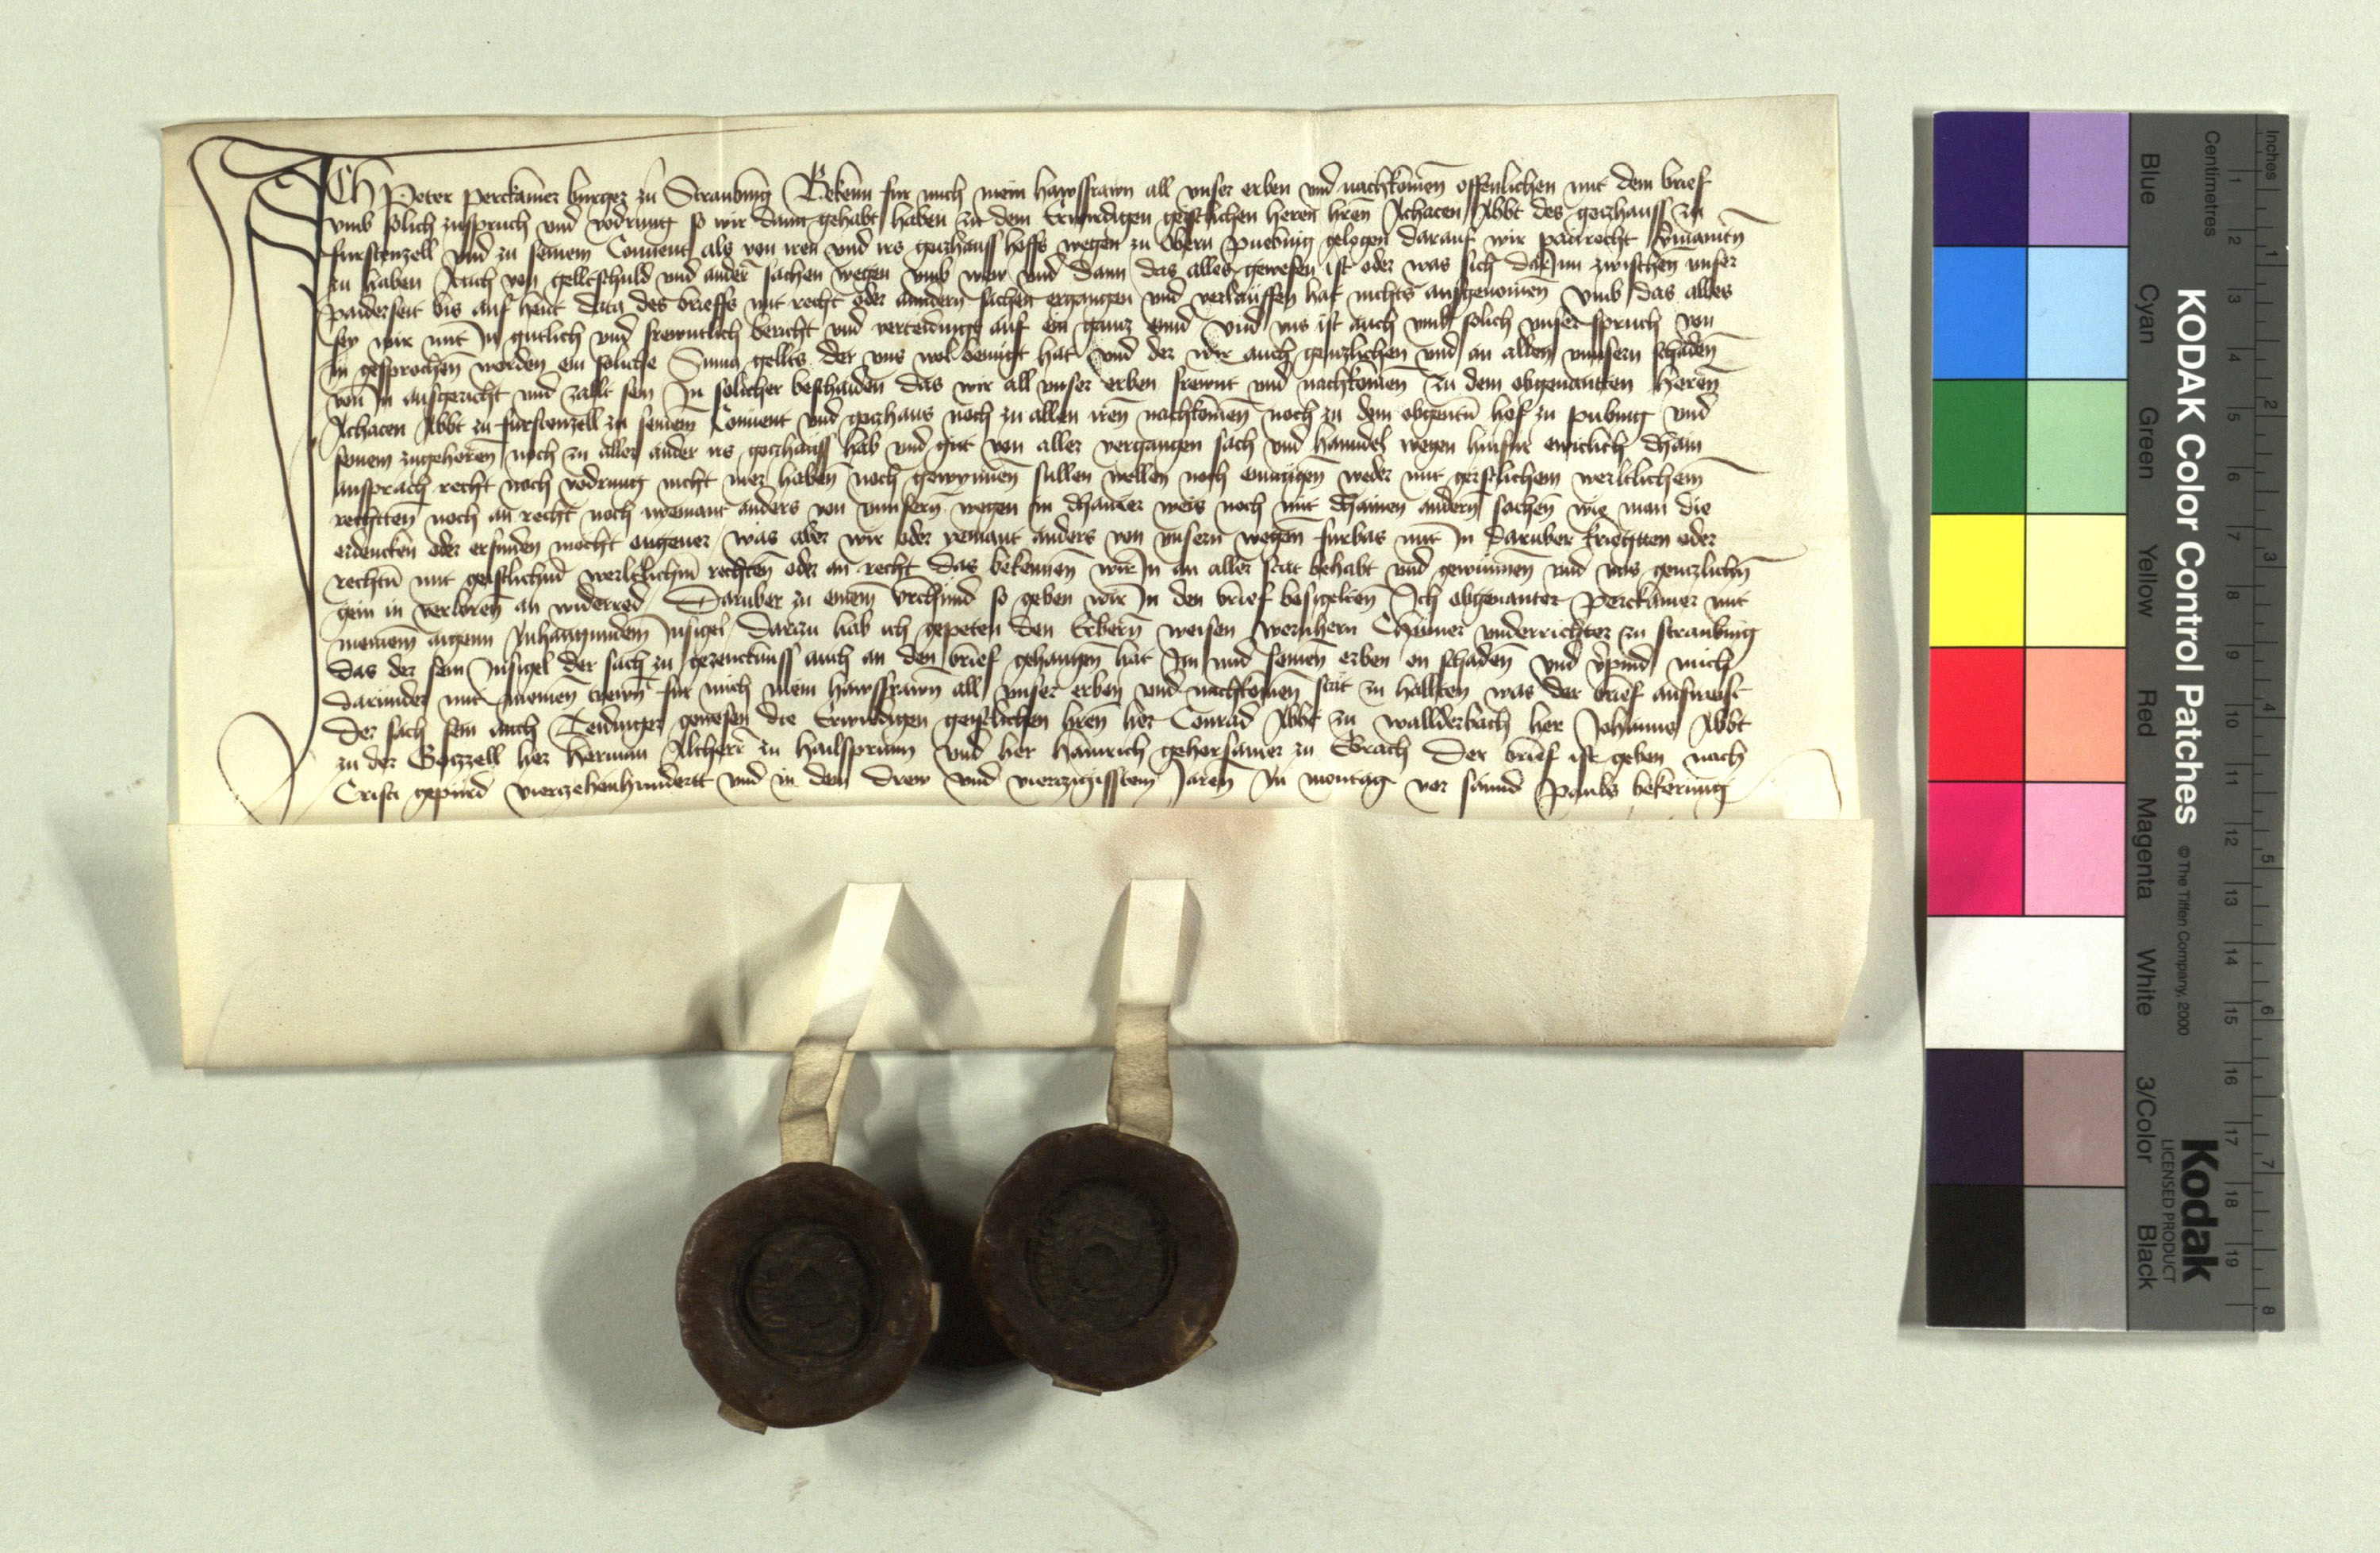 ICh Peter Perckamer burger zu Straubing Bekenn fur mich mein hawsfrawn all unser erben und nachkomen offenlichen mit dem brief
umb solich zuspruch und vodrung so wir dann gehabt haben zu dem Erwirdigen geistlichen heren hern Achacen Abbt des gotzhauss zu
furstenzell und zu seinem Convent als von iren und irs gotzhauss hoffs wegen zu obern puebing gelegen darauf wir paurecht
zu haben Auch von gelltschuld und ander sachen wegen umb wew und dann das alles gewesen ist oder was sich darinn zwischen unser
paiderseit bis auf hewt data des brieffs mit recht oder anndern sachen ergangen und verlauffen hat nichts ausgenomen umb das alles
sey wir mit In gutlich und frewntlich bericht und verteidingt auf ein gantz ennd und uns ist auch umb solich unser spruch von
in gesprochen worden ein soliche Suma gellts der uns wol benugt hat und der wir auch genzlichen und an allen unnsern schaden
von In ausgericht und zallt sein In solicher beschaiden das wir all unser erben frewnt und nachkomen zu dem obgenantten Heren
Achacen Abbt zu furstenzell zu seinem Convent und gotzhaus noch zu allen iren nachkomen noch zu dem obgentn hof zu pubing und
seinem zugehoren noch zu aller ander irs gotzhauss hab und gut von aller vergangen sach und hanndel wegen hinfur ewiclich chain
ansprach recht noch vodrung nicht mer haben noch gewynnen sullen wellen noch enmugen weder mit geistlichem werltlichem
rechtten noch an recht noch niemant anders von unnsern wegen in chainer weis noch mit chainen andern sachen wie man die
erdencken oder erfinden mocht ongever was aber wir oder yemant anders von unsern wegen furbas mit In daruber kriegtten oder
rechtn mit geistlichn werltlichm rechten oder an recht das bekennen wir In an aller stat behabt und gewunnen und uns genczlichn
gein in verloren an widerred Daruber zu einem urchund so geben wir In den brief besigelten Ich obgenanter Perckamer mit
meinem aigenn Anhanngundem Insigel Darzu hab ich gepeten den Erbern weisen wernhern Chamer underrichter zu straubing
das der sein Insigel der sach zu gezeucknuss auch an den brief gehangen hat Im und seinen erben on schaden und mich
darunder mit meinen trewn fur mich mein hawsfrawn all unser erben und nachkomen stat zu hallten was der brief ausweist
Der sach sein auch Teidinger gewesen die Erwirdigen geistlichen hern her Conrad Abbt zu wallderbach her Johanns Abbt
zu der Gotzzell her Herman Altherr zu hailsprunn und her Hainrich gehorsamer zu Ebrach Der brief ist geben nach
Cristi gepurd vierzehenhundertt und in dem drew und vierzigisstem Jaren An montag vor sannd Pauls bekerung
KODAK Color Control Patches
© The Tiffen Company, 2000
Kodak
LICENSED PRODUCT
Inches
Centimetres
Blue Cyan Green Yellow Red Magenta White 3/Color Black
1 2 3 4 5 6 7 8 9 10 11 12 13 14 15 16 17 18 19
1 2 3 4 5 6 7 8